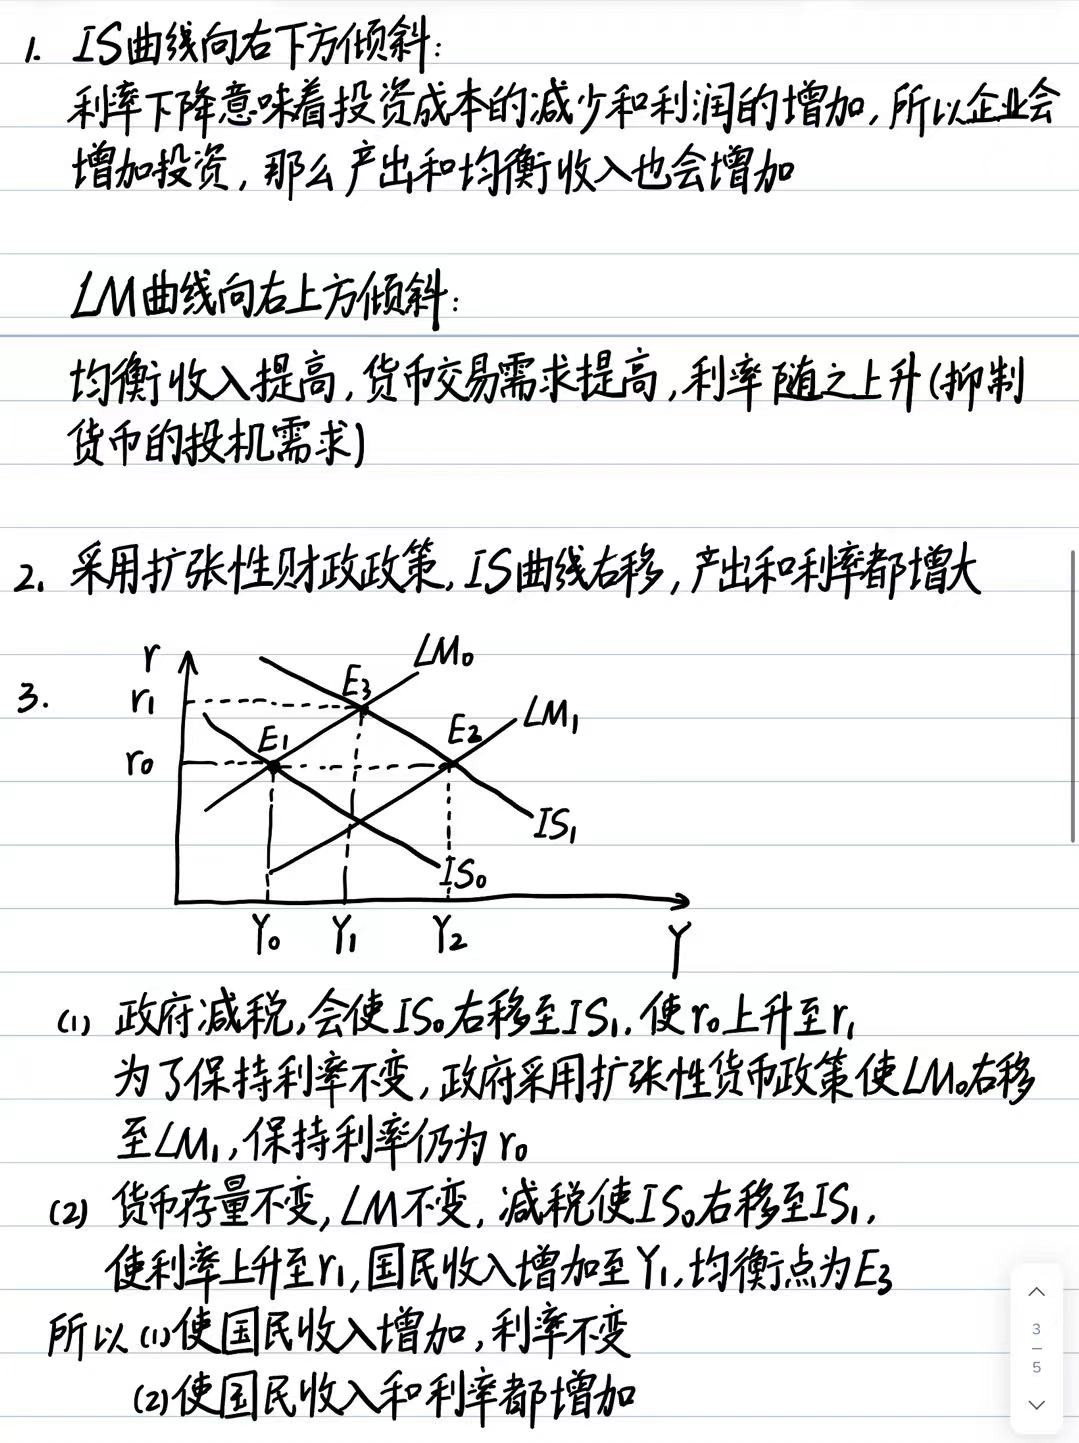 1. IS曲线向右下方倾斜:
利率下降意味着投资成本的减少和利润的增加,所以企业会
增加投资,那么产出和均衡收入也会增加
LM曲线向右上方倾斜:
均衡收入提高,货币交易需求提高,利率随之上升(抑制
货币的投机需求)
2. 采用扩张性财政政策,IS曲线右移,产出和利率都增大
3.
r
LM₀
r₁
E₃
LM₁
E₁
E₂
r₀
IS₁
IS₀
Y₀ Y₁ Y₂ Y
(1) 政府减税,会使IS₀右移至IS₁,使r₀上升至r₁
为了保持利率不变,政府采用扩张性货币政策使LM₀右移
至LM₁,保持利率仍为r₀
(2) 货币存量不变,LM不变,减税使IS₀右移至IS₁,
使利率上升至r₁,国民收入增加至Y₁,均衡点为E₃
所以(1)使国民收入增加,利率不变
(2)使国民收入和利率都增加
3
5